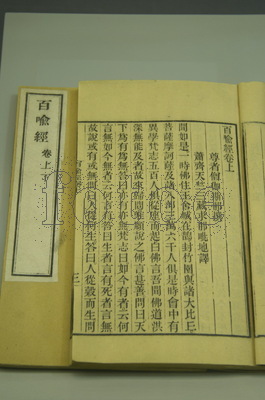 百喻經 卷上下
百喻經卷上
尊者僧伽斯那撰
蕭齊天竺三藏求那毗地譯
聞如是一時佛住王舍城在鵲封竹園與諸大比丘
菩薩摩訶薩及諸八部三萬六千人俱是時會中有
異學梵志五百人俱從座而起白佛言吾聞佛道洪
深無能及者故來歸問唯願說之佛言甚善問曰天
下爲有爲無答曰亦有亦無梵志曰如今有者云何
言無如今無者云何言有答曰生者言有死者言無
故說或有或無問曰人從何生答曰人從穀而生問